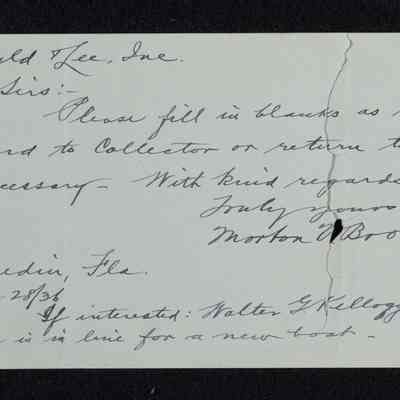 uld Lee, Inc.
Sirs:-
Please fill in blanks as
nd to Collector or return t
cessary- With kind regards
Truly yours
Morton N Boo
edin, Fla.
28/36
If interested: Walter G Kellogg
is in line for a new boat-